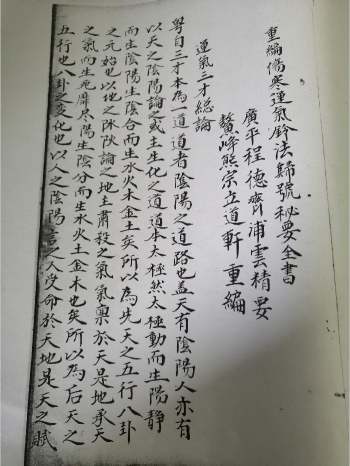 重編傷寒運氣鈐法歸號秘要全書
廣平程德齊浦雲精要
鰲峰熊宗立道軒重編
運氣三才総論
粤自三才本為一道道者陰陽之道路也盖天有陰陽人亦有
以天之陰陽論之或土生化之道道本太極然太極動而生陽静
而生陰陽生陰合而生水火木金土矣所以為先天之五行八卦
之元始也以地之陎陎論之地主肅殺之氣氣禀於天是地承天
之氣而生死癖尽陽生陰分而生水火土金木也矣所以為后天之
五行也八卦之变化也以人之陰陽言之人受命於天地是天之賦